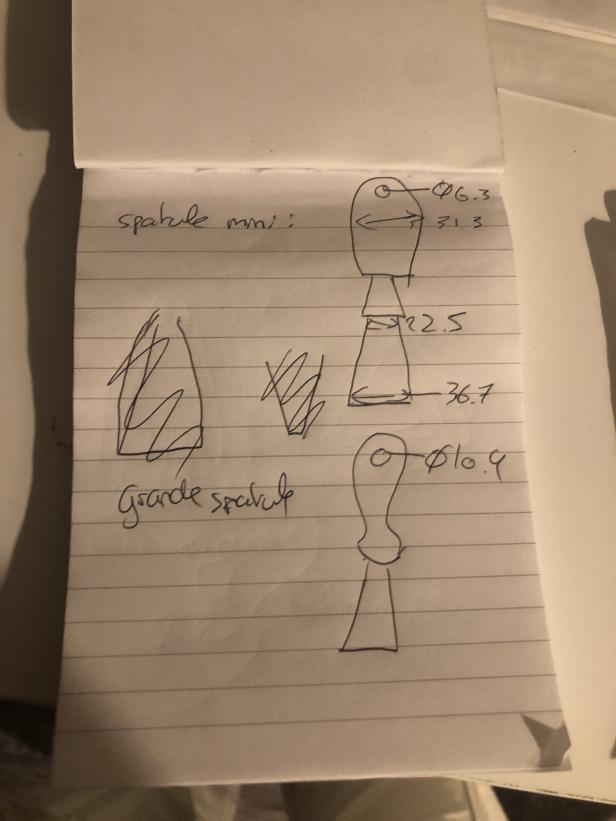 spatule mini :
Ø6.3
31.3
22.5
36.7
Ø10.9
Grande spatule